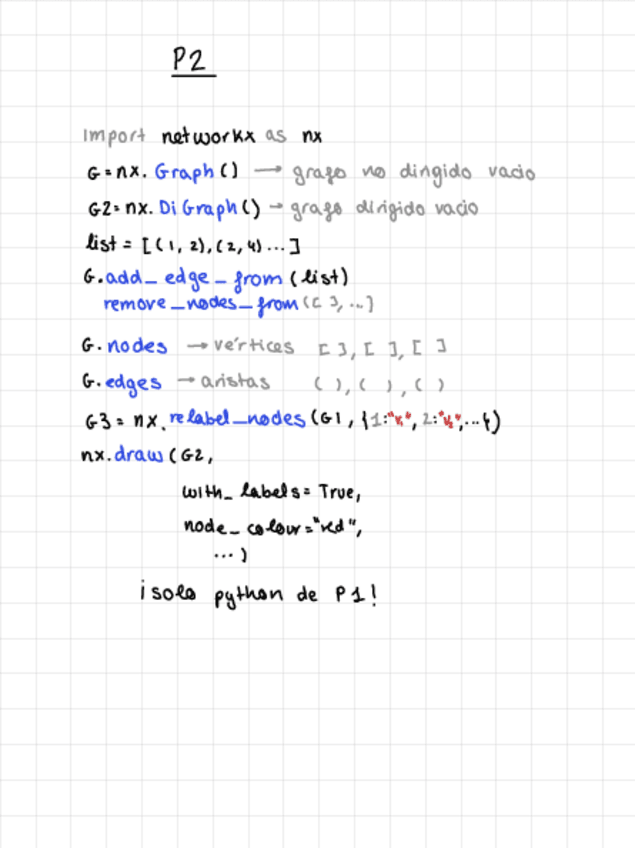 P2
import networkx as nx
G=nx.Graph() → grafo no dirigido vacio
G2=nx.DiGraph() → grafo dirigido vacio
list = [(1, 2),(2, 4)...]
G.add_edge_from (list)
remove_nodes_from([ ], ...]
G.nodes → vértices [ ], [ ], [ ]
G.edges → aristas ( ), ( ), ( )
G3 = nx.relabel_nodes (G1, {1:"v₁", 2:"v₂",...})
nx.draw (G2,
with_labels= True,
node_colour="red",
...)
¡solo python de P1!